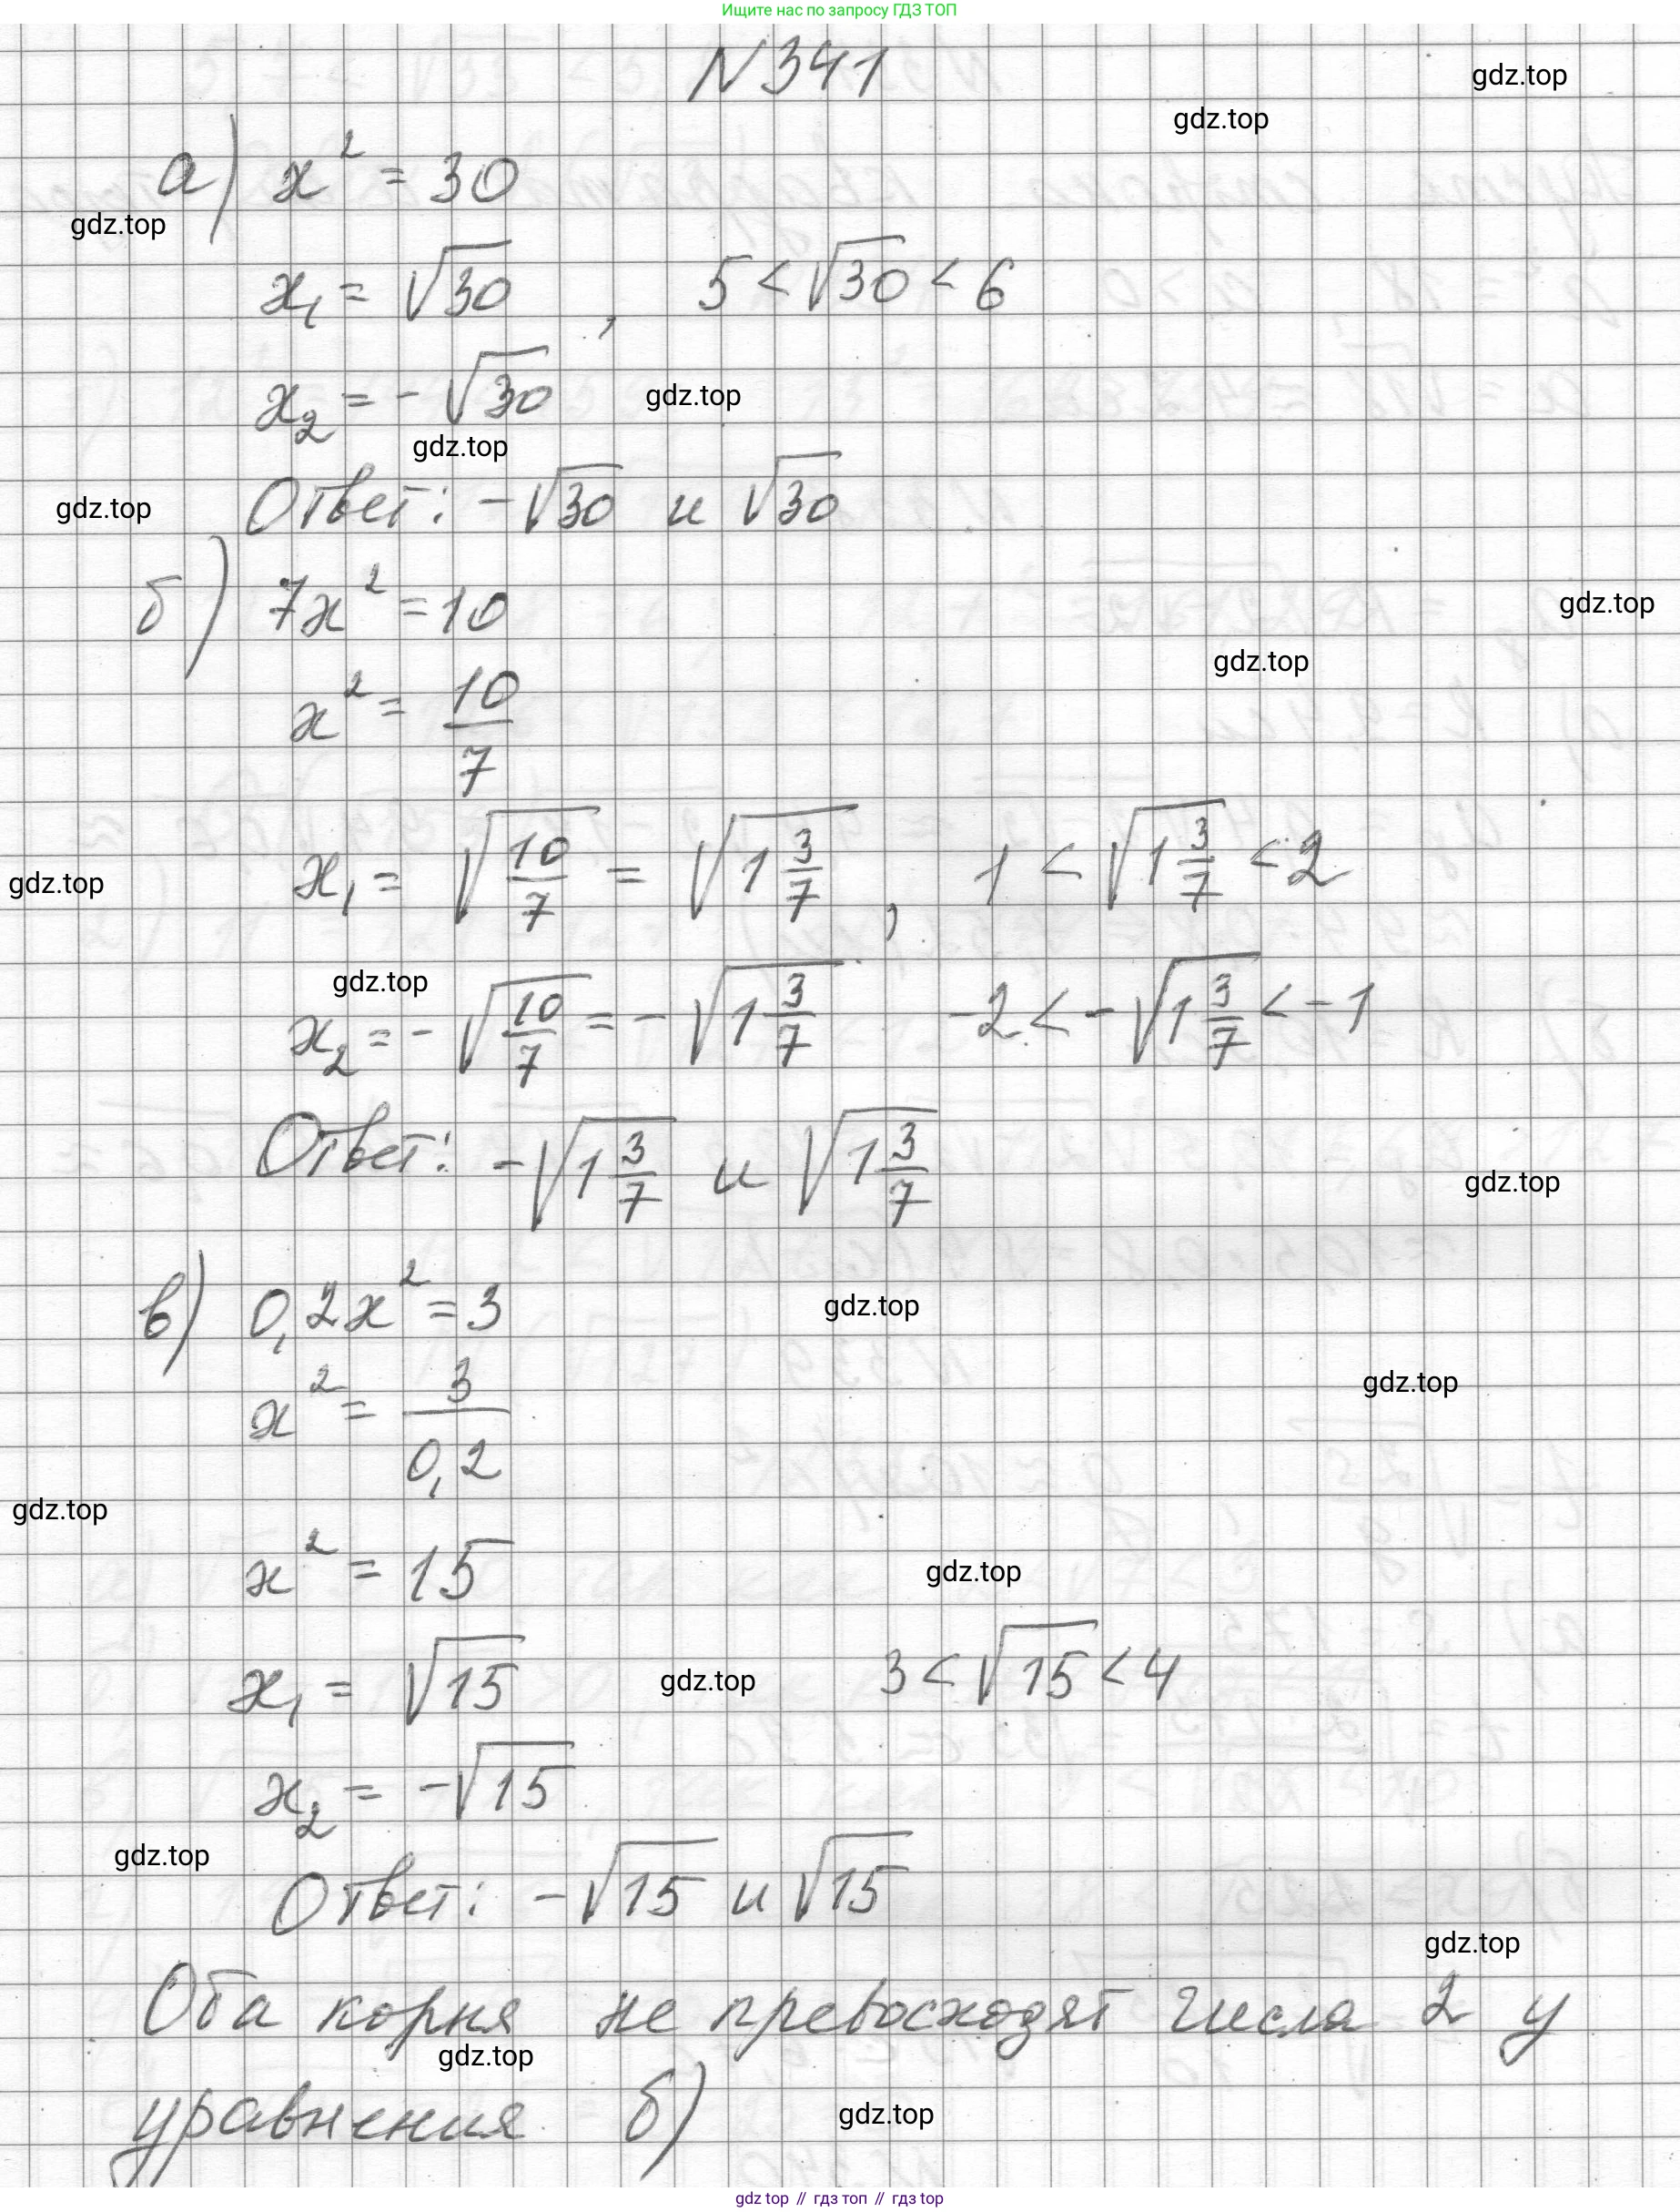 Ищите нас по запросу ГДЗ ТОП
N 341
gdz.top
gdz.top
а) x² = 30
gdz.top
x₁ = √30 , 5 < √30 < 6
x₂ = -√30
gdz.top
gdz.top
Ответ: -√30 и √30
gdz.top
б) 7x² = 10
gdz.top
gdz.top
x² = 10/7
x₁ = √(10/7) = √(1 3/7) , 1 < √(1 3/7) < 2
gdz.top
gdz.top
x₂ = -√(10/7) = -√(1 3/7) -2 < -√(1 3/7) < -1
Ответ: -√(1 3/7) и √(1 3/7)
gdz.top
в) 0,2x² = 3
gdz.top
gdz.top
x² = 3/0,2
gdz.top
x² = 15
gdz.top
x₁ = √15 3 < √15 < 4
gdz.top
x₂ = -√15
gdz.top
Ответ: -√15 и √15
gdz.top
Оба корня не превосходят числа 2 у
gdz.top
уравнения б)
gdz.top
gdz top // гдз топ // гдз top